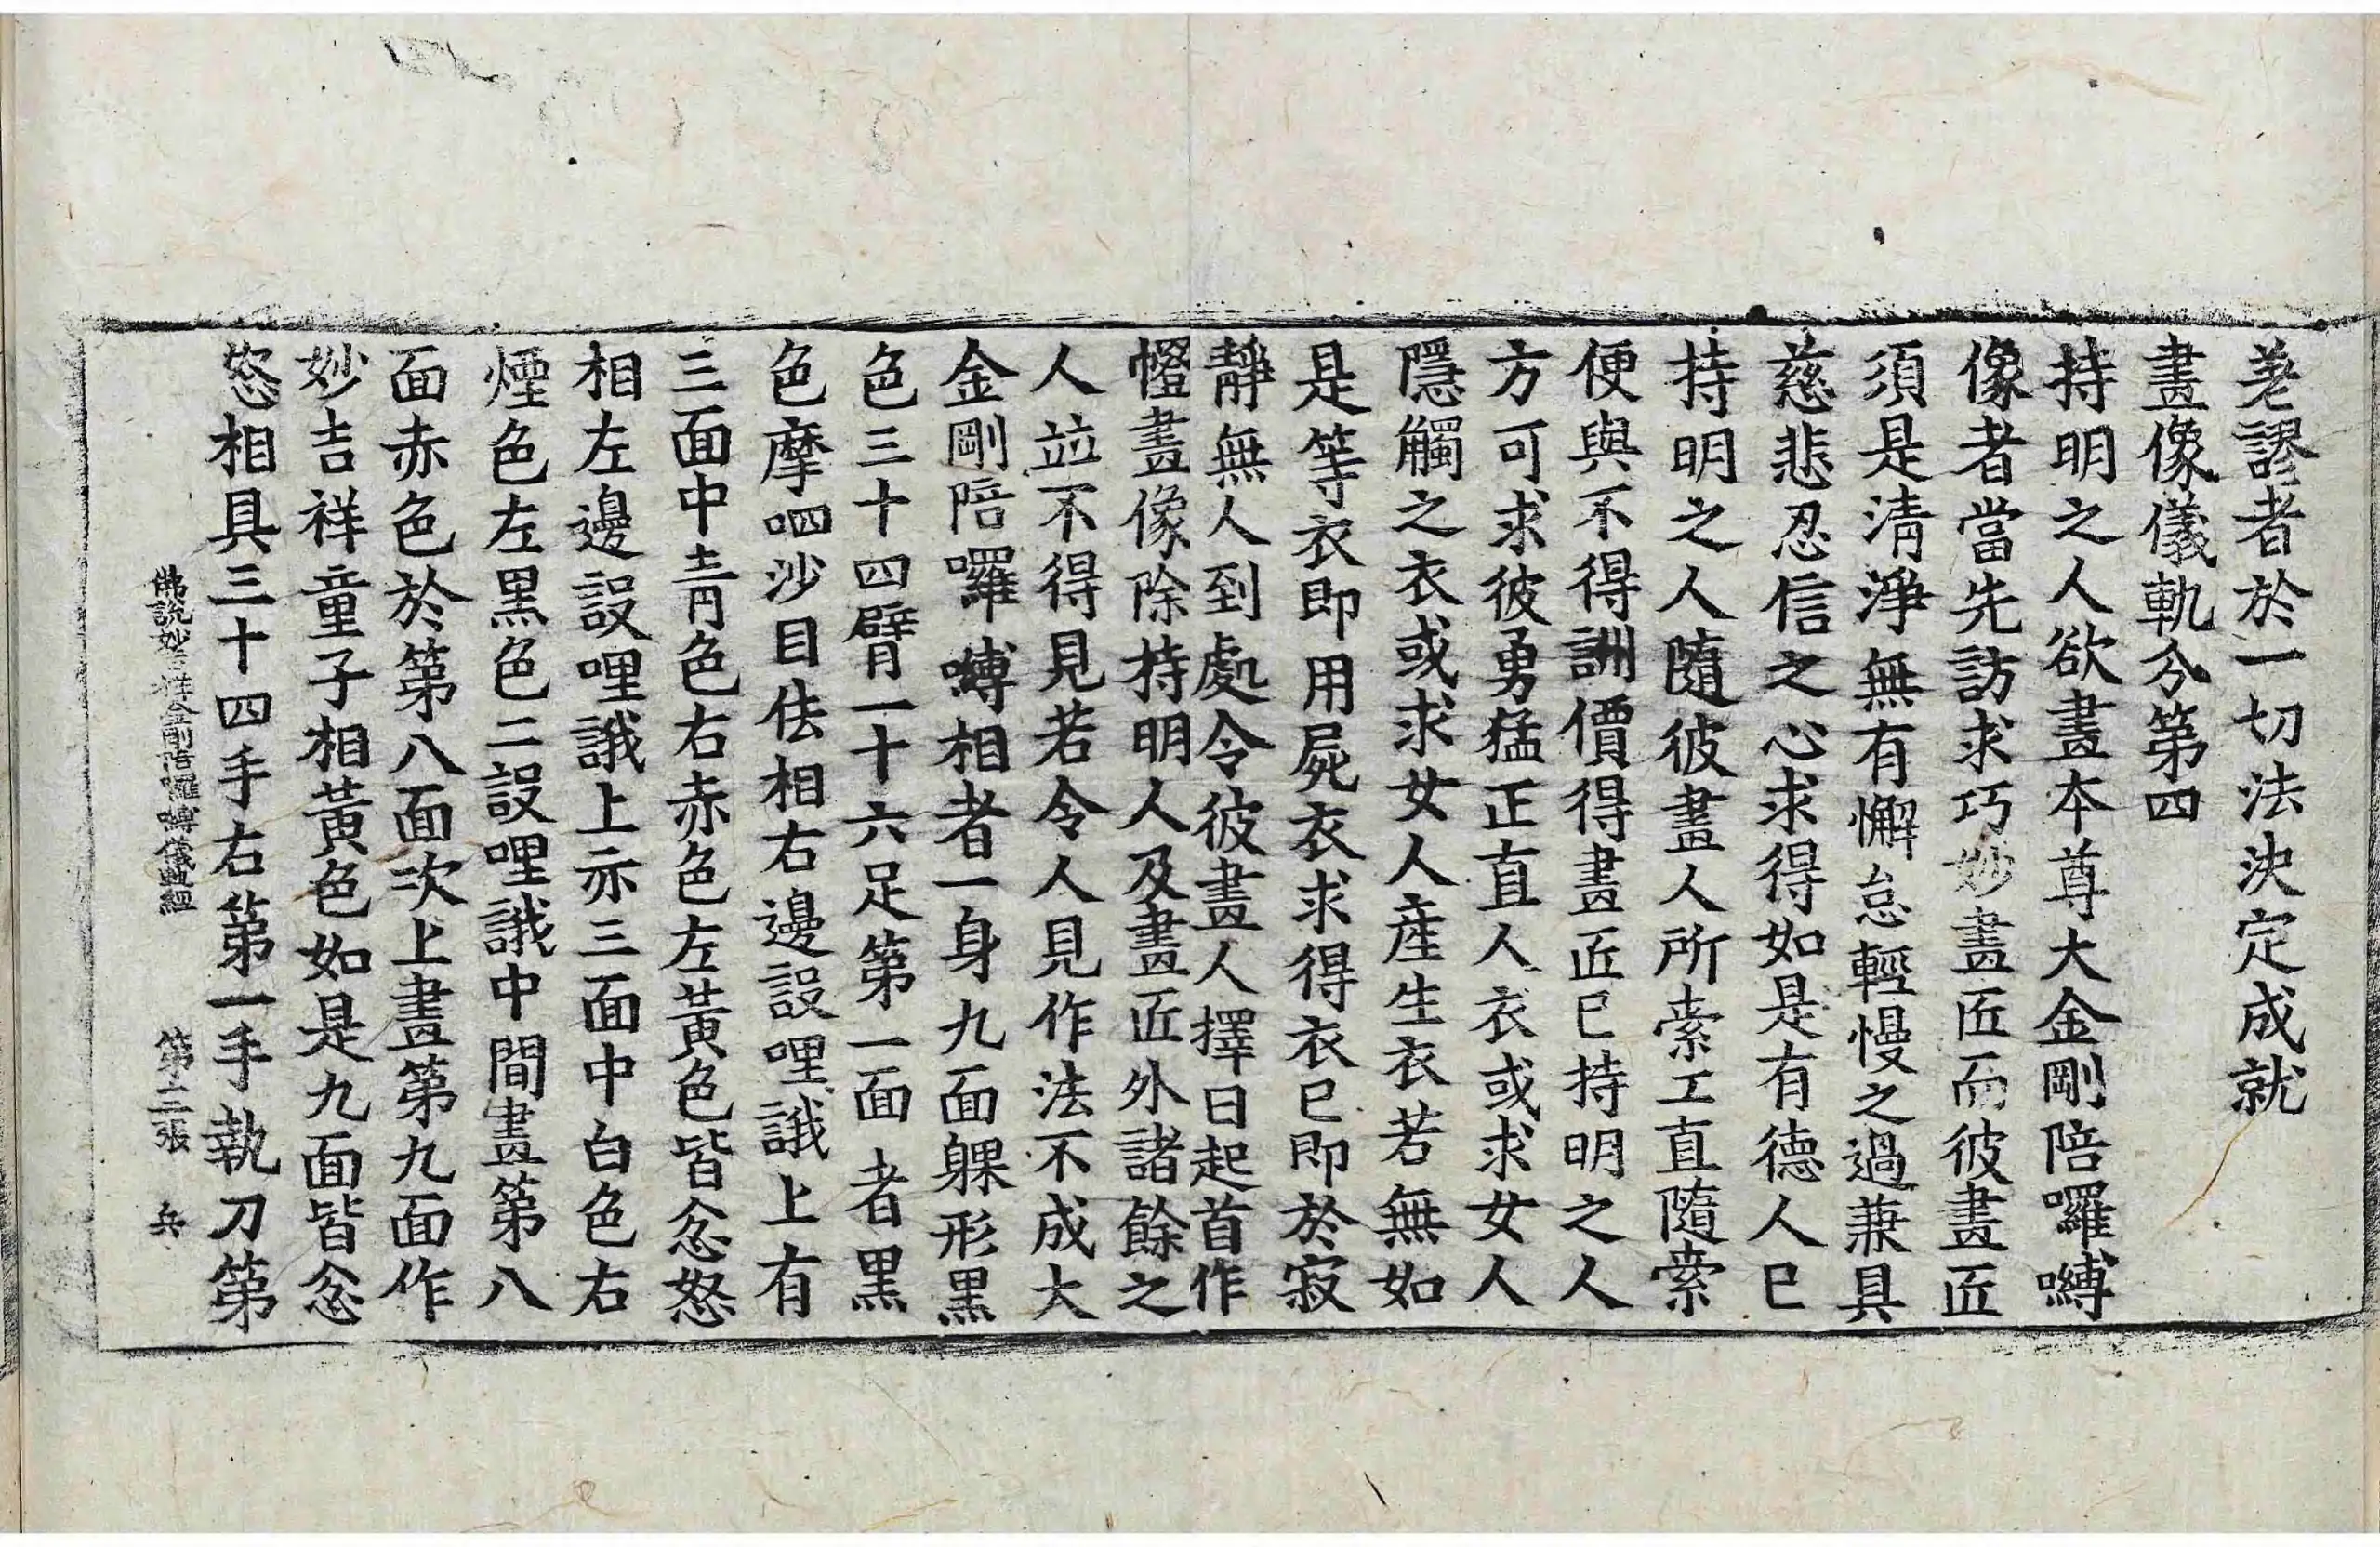 差謬者於一切法決定成就
畫像儀軌分第四
持明之人欲畫本尊大金剛陪囉嚩
像者當先訪求巧妙畫匠而彼畫匠
須是清淨無有懈怠輕慢之過兼具
慈悲忍信之心求得如是有德人已
持明之人隨彼畫人所索工直隨索
便與不得詶價得畫匠已持明之人
方可求彼勇猛正直人衣或求女人
隱觸之衣或求女人產生衣若無如
是等衣即用屍衣求得衣已即於寂
靜無人到處令彼畫人擇日起首作
㡧畫像除持明人及畫匠外諸餘之
人竝不得見若令人見作法不成大
金剛陪囉嚩相者一身九面躶形黑
色三十四臂一十六足第一面者黑
色摩呬沙目佉相右邊設哩誐上有
三面中青色右赤色左黃色皆忿怒
相左邊設哩誐上亦三面中白色右
煙色左黑色二設哩誐中間畫第八
面赤色於第八面次上畫第九面作
妙吉祥童子相黃色如是九面皆忿
怒相具三十四手右第一手執刀第
佛說妙吉祥金剛陪囉嚩儀軌經 第三張 兵